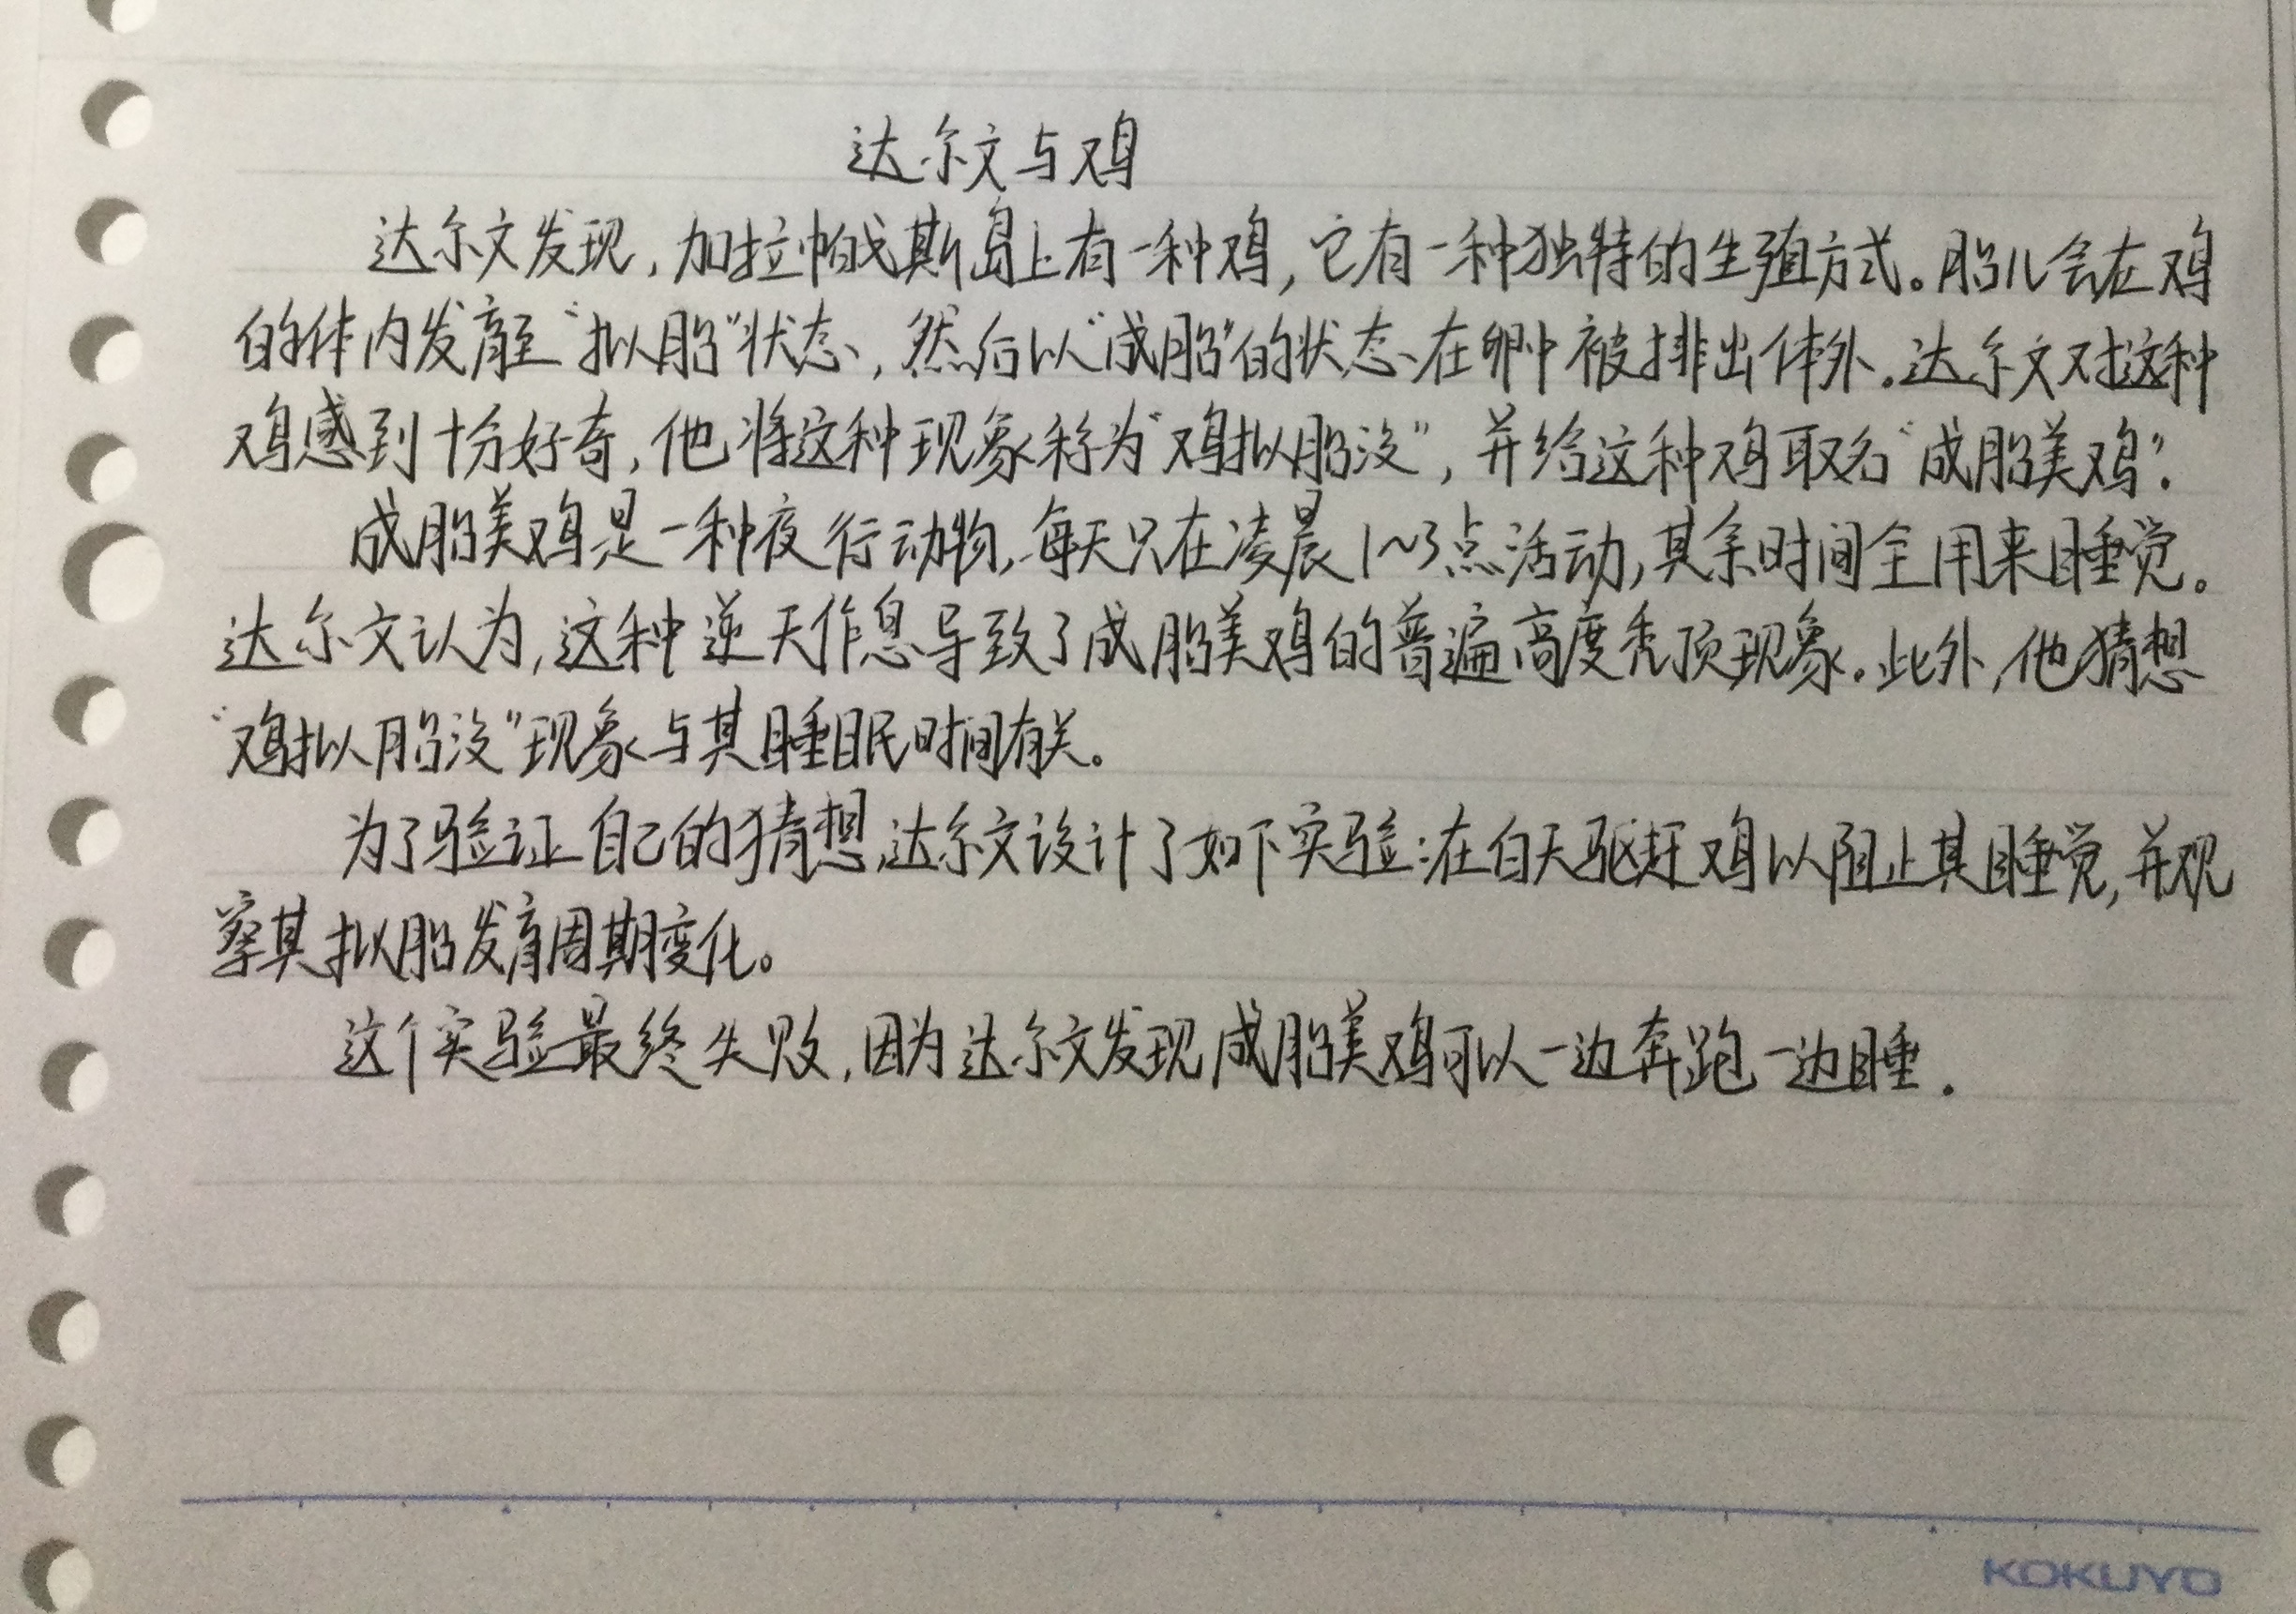 达尔文与鸡
达尔文发现，加拉帕戈斯岛上有一种鸡，它有一种独特的生殖方式。胎儿会在鸡
的体内发育至“拟胎”状态，然后以“成胎”的状态在卵中被排出体外。达尔文对这种
鸡感到十分好奇，他将这种现象称为“鸡拟胎没”，并给这种鸡取名“成胎美鸡”.
成胎美鸡是一种夜行动物，每天只在凌晨1~3点活动，其余时间全用来睡觉。
达尔文认为，这种逆天作息导致了成胎美鸡的普遍高度秃顶现象。此外，他猜想
“鸡拟胎没”现象与其睡眠时间有关。
为了验证自己的猜想，达尔文设计了如下实验：在白天驱赶鸡以阻止其睡觉，并观
察其拟胎发育周期变化。
这个实验最终失败，因为达尔文发现成胎美鸡可以一边奔跑一边睡.
KOKUYO